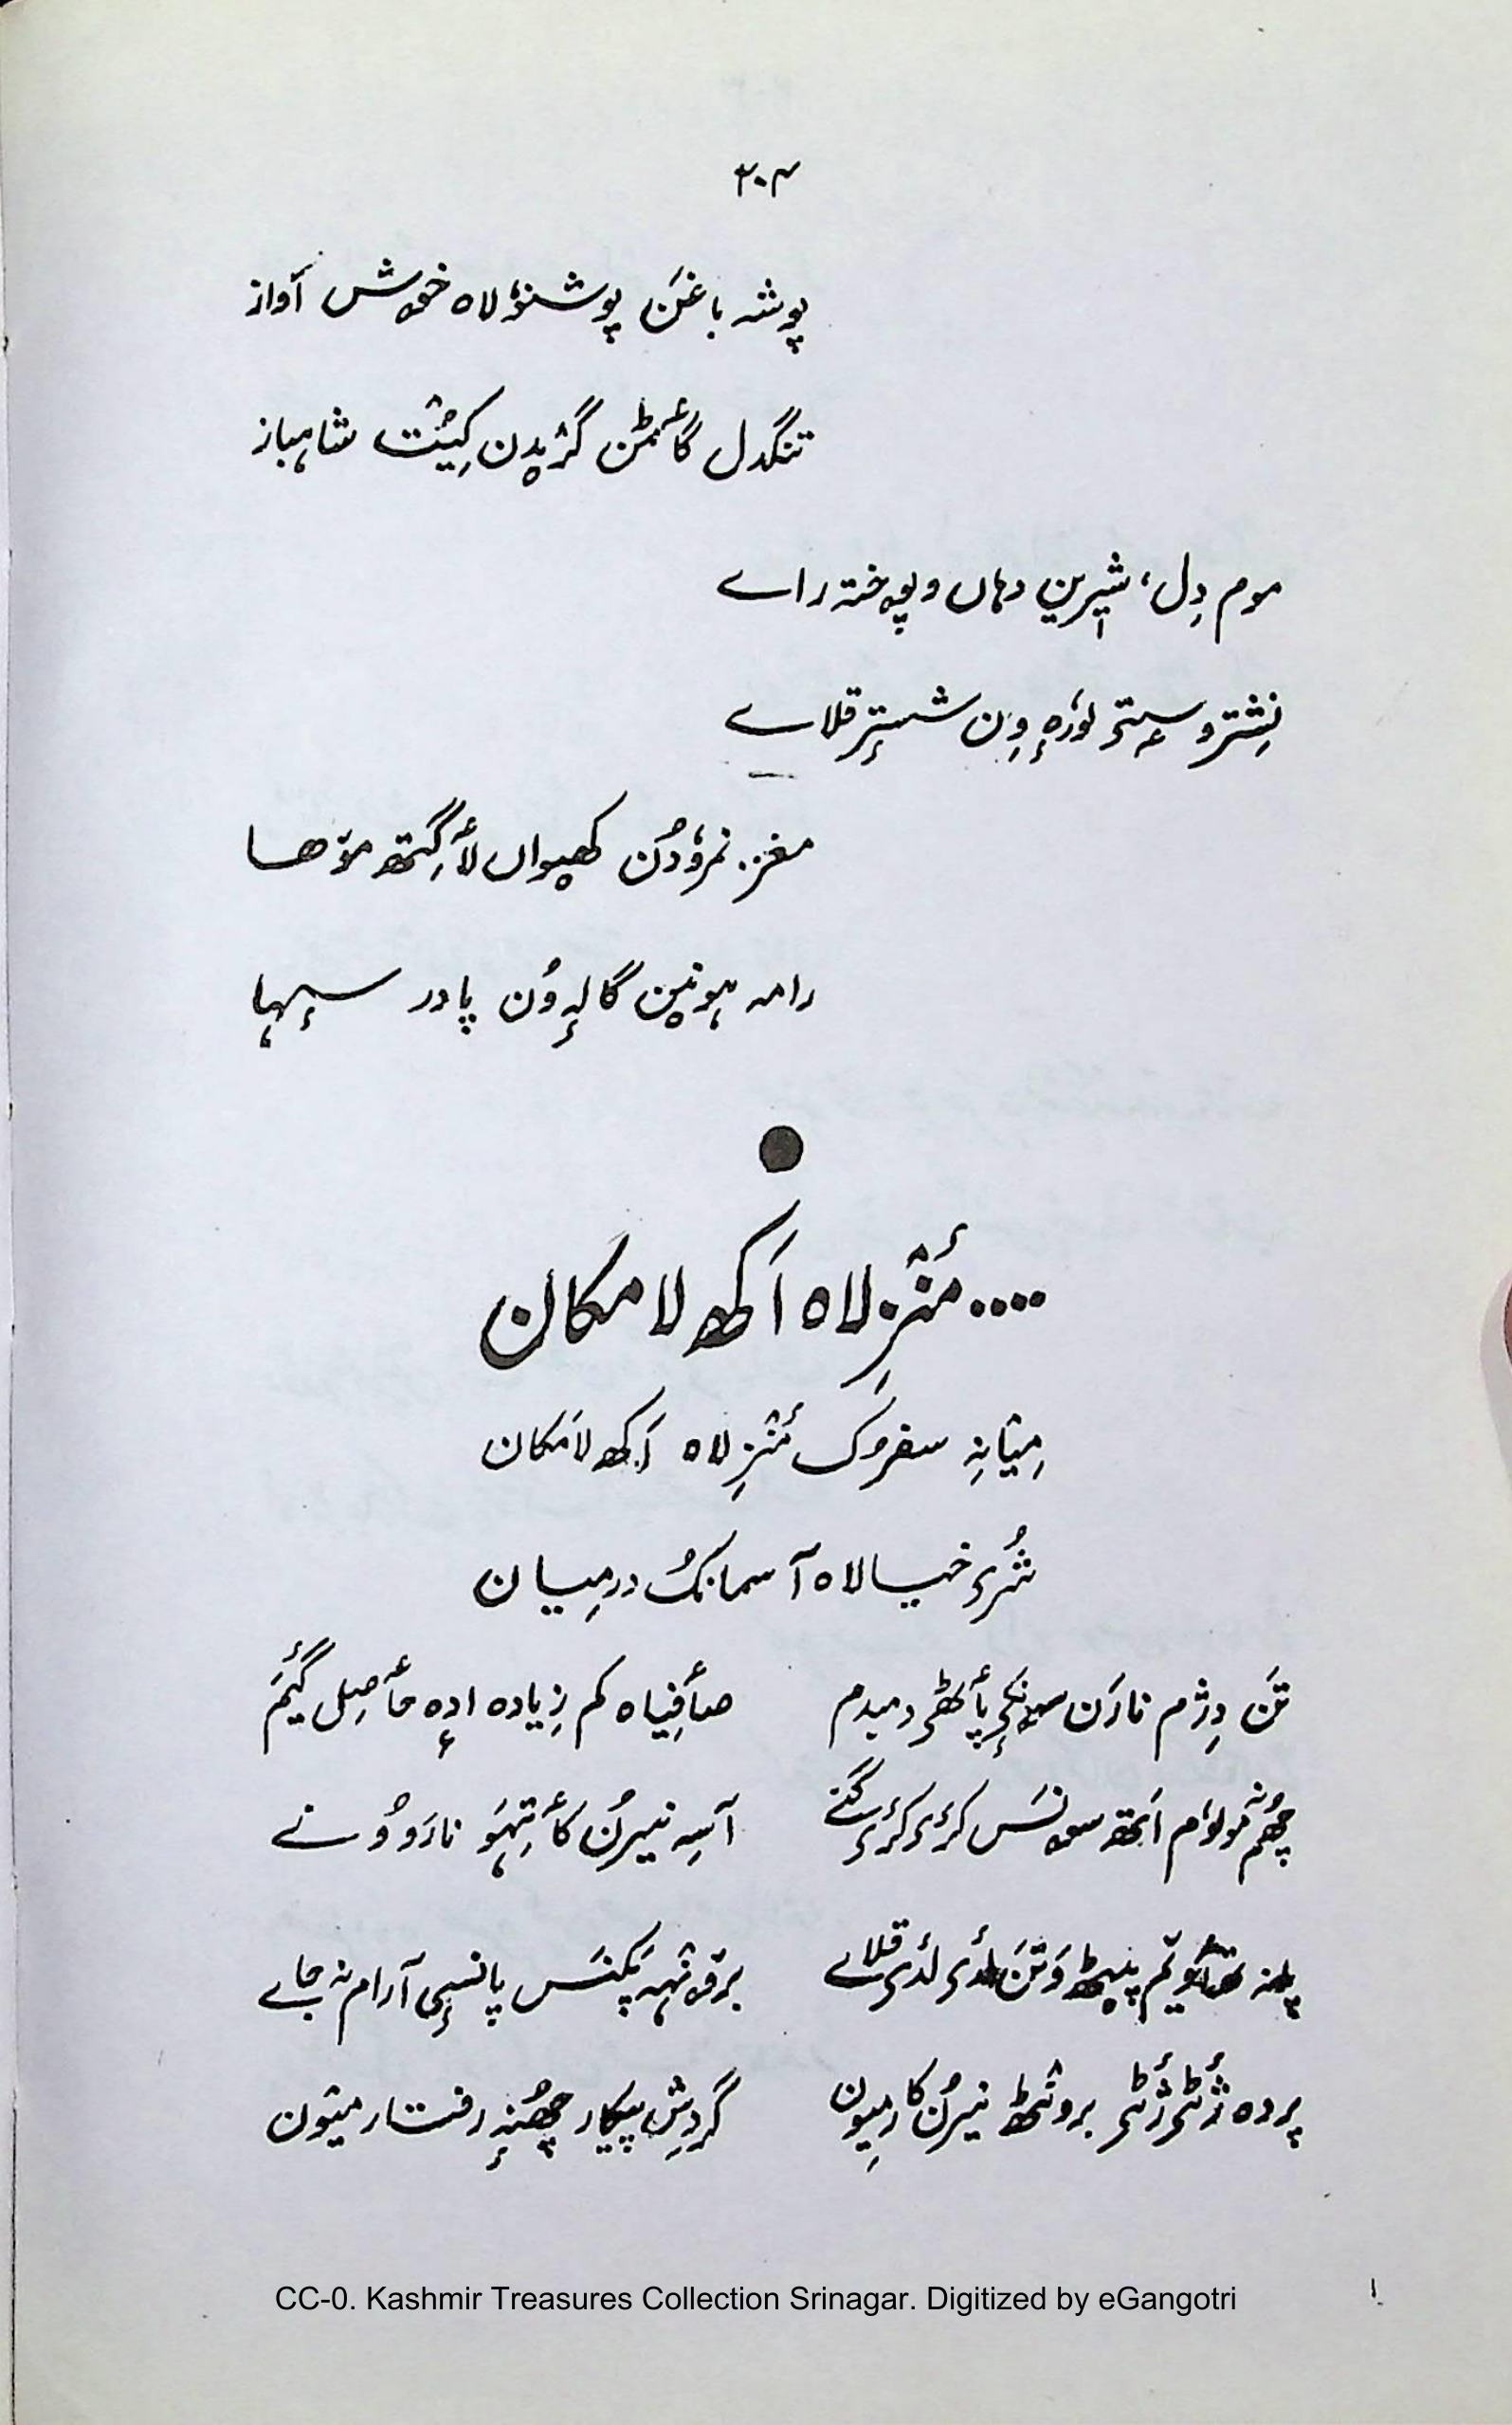 ۳۰۴
پوشہ باغن پوشنوٗلاہ خوش آواز
تنگدل گٲمٕژن گژیدن کیُت شاہباز
موم دِل، شیٖرین دہاں و پوختہ راے
نِشترو سٟتۍ لوٗرٕ وِن شستٕر قلاے
مغز نمروٗدُن کھیواں لٲگِتھ موٚہا
رامہ ہونین گالہٕ وُن پادر سہٕہا
....مٔنٛزِلاہ اَکھ لامکان
میٛانہِ سفرُک مٔنٛزِلاہ اَکھ لامکان
شُرۍ خیالاہ آسمانکُ درمِیان
تَن دِژم نارَن سونٕکۍ پٲٹھۍ دمبدم
صٲفِیاہ کم زیادہ ادٕہ حٲصِل گیٔم
چُھم نہٕ مولوٗم اَتھ سونَس کرٔۍ کرٔۍ گنے
آسہِ نیرُن کٲتِہَو نارَو وُنے
پنہٕ تھٲوۍتَم پیٹھ وَتَن لٔدۍ لٔدۍ قلاے
برقو تہہ پکنَس پانسٕی آرام نہ جاے
پردہ ژٔٹۍ ژٔٹۍ برونٛٹھ نیرُن کار میون
گردِشِ پیکار چھُنہٕ رفتار میون
CC-0. Kashmir Treasures Collection Srinagar. Digitized by eGangotri